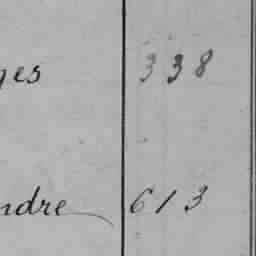 ges 338
ndre 613